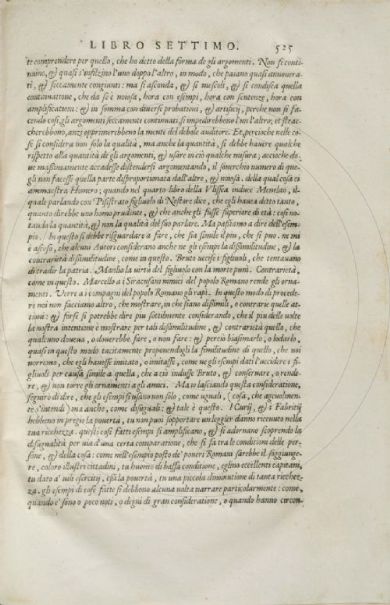 LIBRO SETTIMO. 525
te comprendere per quello, che ho detto della forma de gli argomenti. Non si conti-
nuino, & quasi s'infilzino l'uno doppo l'altro, in modo, che paiano quasi annoverati
, & seccamente congiunti: ma si asconda, & si mescoli, & si condisca quella
continuatione, che da se è noiosa, hora con esempi, hora con sentenze, hora con
amplificationi: & in somma con diverse probationi, & artificij, perche non si fa-
cendo così gli argomenti seccamente continuati, si impedirebbeno l'un l'altro, et strac
cherebbono, anzi opprimerebbeno la mente del debole auditore. Et, percioche nelle co-
se si considera non solo la qualità, ma anche la quantità, si debbe havere qualche
rispetto alla quantità de gli argomenti, & usare in ciò qualche misura, accioche do-
ve massimamente accadesse distendersi argomentando, il soverchio numero di que-
gli non facesse quella parte disproportionata dall'altre, & noiosa. della qual cosa ci
ammaestra Homero; quando nel quarto libro della Ulissea induce Menelao, il-
quale parlando con Pisistrato figliuolo di Nestore dice, che egli haveva ditto tanto,
quanto direbbe uno homo prudente, & che anche gli fusse superiore di età: così no-
tando la quantità, & non la qualità del suo parlare. Ma passiamo a dire dell'esem-
pio. In questo si debbe risguardare a fare, che sia simile il piu, che si puo. ne mi
è ascoso, che alcuni Autori considerano anche ne gli esempi la dissimilitudine, & la
contrarietà dissimilitudine, come in questo. Bruto uccise i figliuoli, che tentavano
di tradir la patria. Manlio la virtù del figliuolo con la morte punì. Contrarietà,
come in questo. Marcello a i Siracusani nimici del popolo Romano rende gli orna-
menti. Verre a i compagni del popolo Romano gli rapì. In questo modo di procede-
re noi non facciamo altro, che mostrare, in che siano dissimili, e contrarie quelle at-
tioni: & forse si potrebbe dire piu sottilmente considerando, che il piu delle volte
la nostra intentione è mostrare per tali dissimilitudini, & contrarietà quello, che
qualcuno doveva, o doverebbe fare, o non fare: & percio biasimarlo, o lodarlo,
quasi in questo modo tacitamente proponendogli la similitudine di quello, che noi
vorremo, che egli havesse imitato, o imitasse, come ne gli esempi dati l'uccidere i fi-
gliuoli per causa simile a quella, che a ciò indusse Bruto, & conservare, o rende-
re, & non torre gli ornamenti agli amici. Ma io lasciando questa consideratione,
seguirò di dire, che gli esempi si usano non solo, come uguali, (cosa, che agevolmen-
te s'intende) ma anche, come disuguali: & tale è questo. I Curij, & i Fabritij
hebbeno in pregio la povertà, tu non puoi sopportare un leggier danno ricevuto nella
tua ricchezza. questi così fatti esempi si amplificano, & si adornano scoprendo la
disugualità per via d'una certa comparatione, che si fa tra le conditioni delle per-
sone, & della cosa: come nell'esempio posto de' poveri Romani sarebbe il soggiunge-
re, coloro illustri cittadini, tu huomo di bassa conditione, eglino eccellenti capitani,
tu dato a' vili esercitij, essi la povertà, tu una piccola diminutione di tanta ricchez-
za. gli esempi di cose fatte si debbono alcuna volta narrare particolarmente: come,
quando e' sono o poco noti, o degni di gran consideratione, o quando hanno circon-